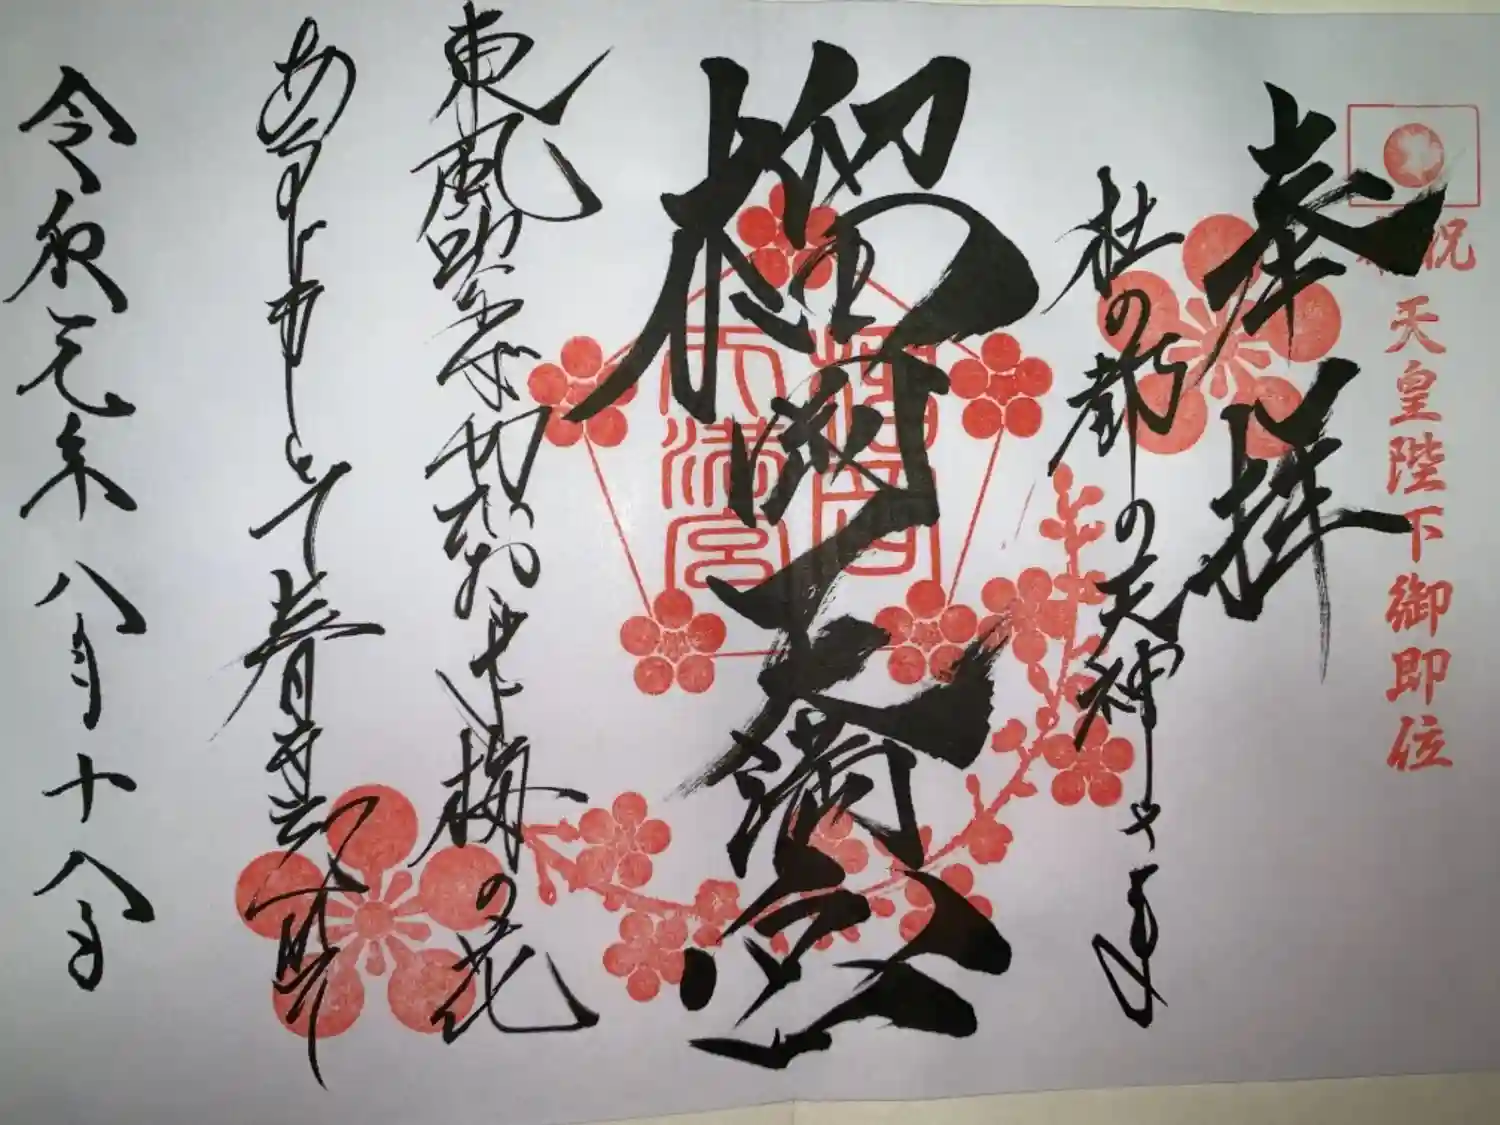 奉祝
天皇陛下御即位
奉拝
杜の都の天神さま
榴岡天満宮
榴岡
天満宮
東風吹かば匂ひおこせよ梅の花
あるじなしとて春な忘れそ
令和元年八月十八日